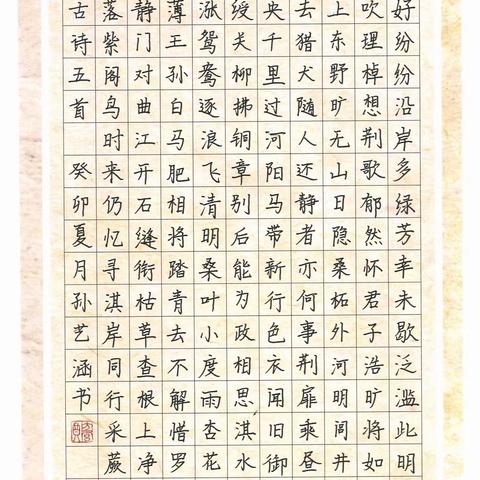 好纷纷沿岸多绿芳幸未歇泛滥此明
吹理棹想荆歌郁然怀君子浩旷将如
上东野旷无山日隐桑柘外河明闾井
去猎犬随人还静者亦何事荆扉乘昼
央千里过河阳马带新行色衣闻旧御
绶关柳拂铜章别后能为政相思淇水
涨鸳鸯逐浪飞清明桑叶小度雨杏花
薄王孙白马肥相将踏青去不解惜罗
静门对曲江开石缝衔枯草查根上净
落紫阁鸟时来仍忆寻淇岸同行采蕨
古诗五首 癸卯夏月孙艺涵书